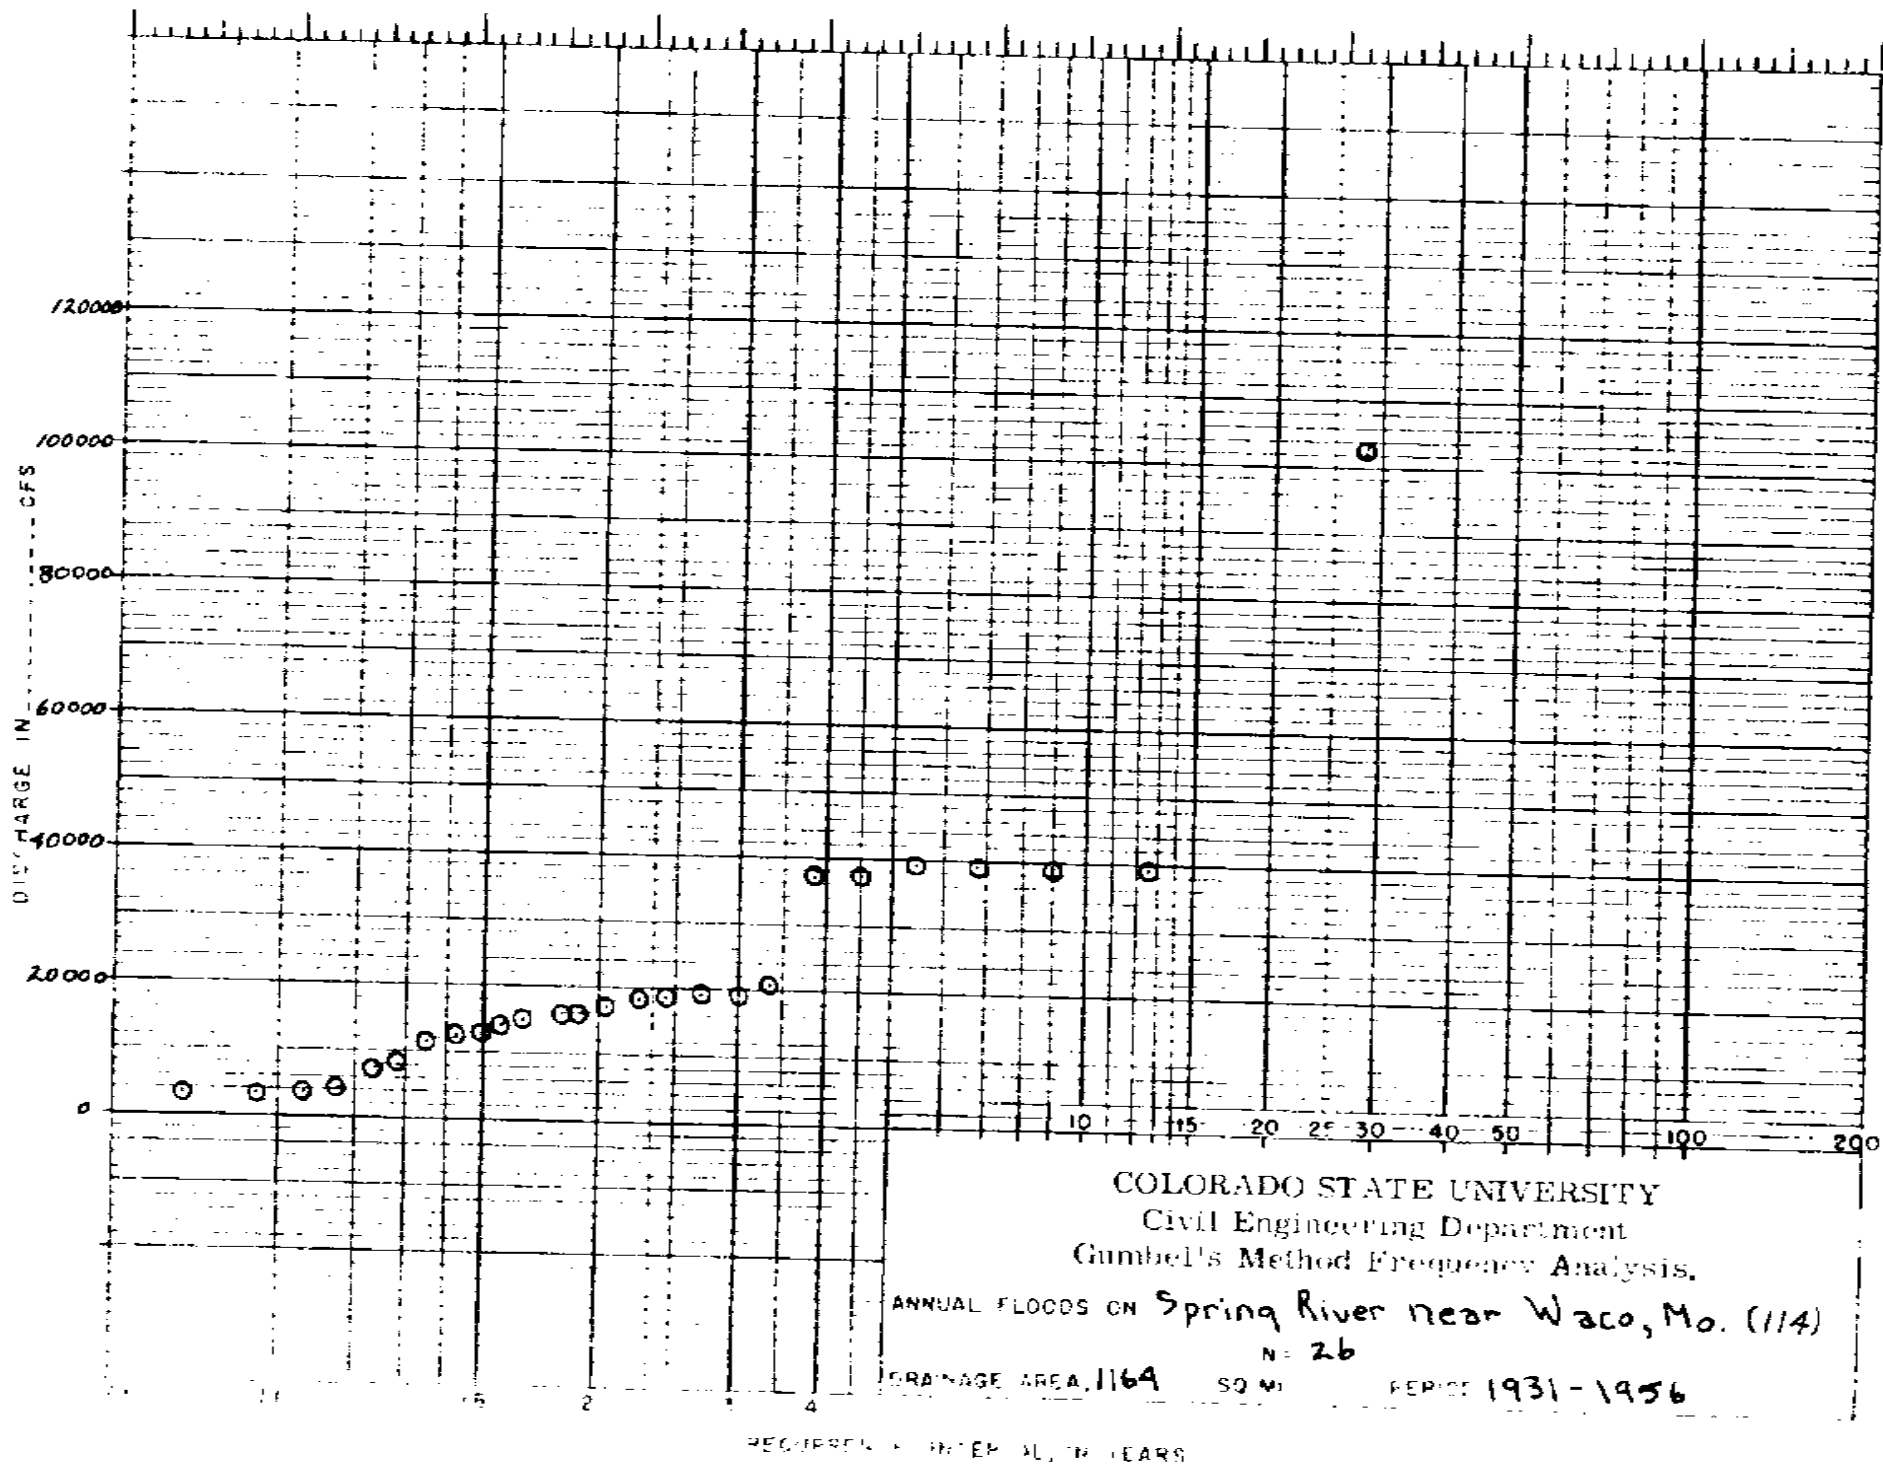 120000
100000
80000
60000
40000
20000
0
CFS
10 15 20 30 40 50 100 200
COLORADO STATE UNIVERSITY
Civil Engineering Department
Gumbel's Method Frequency Analysis.
ANNUAL FLOODS ON Spring River near Waco, Mo. (114)
N = 26
DRAINAGE AREA, 1164 SQ MI PERIOD 1931-1956
2 3 4
IN YEARS